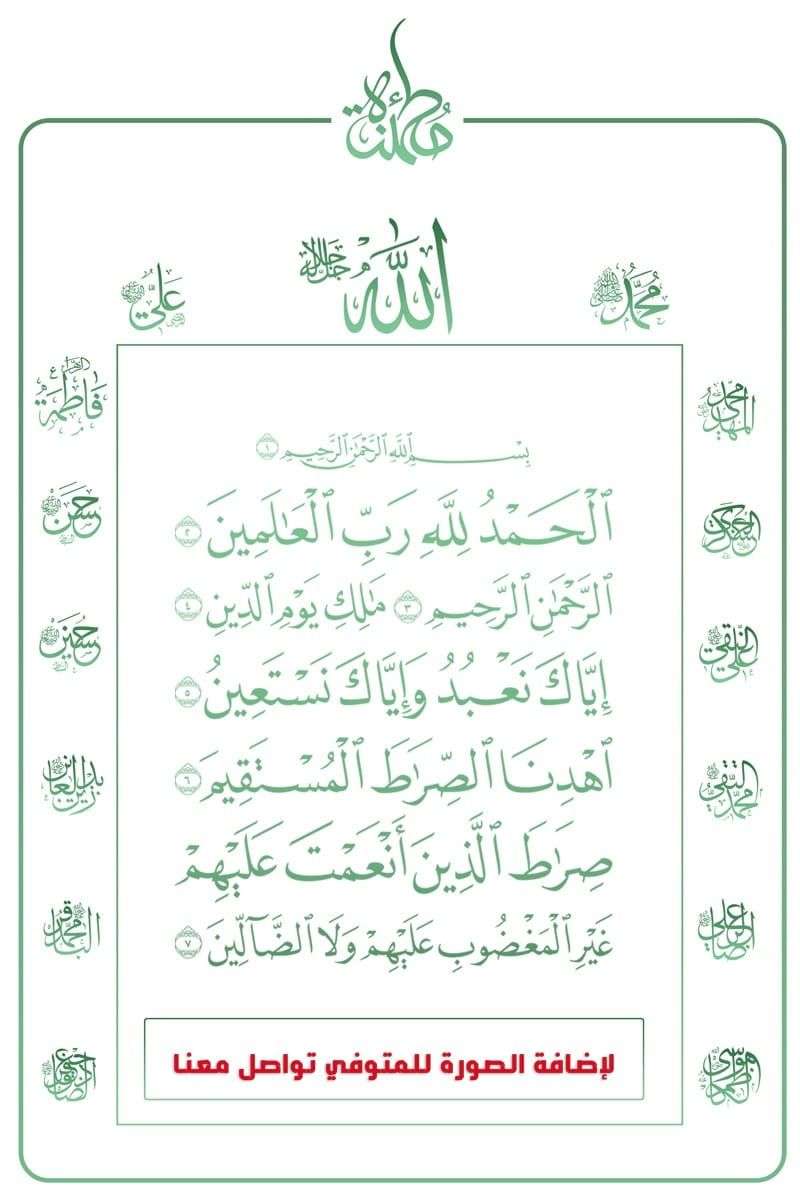 مطمئنة
الله جل جلاله
محمد
علي
فاطمة الزهراء ع
حسن
حسين
زين العابدين
محمد الباقر
جعفر الصادق
محمد المهدي
العسكري
علي النقي
محمد التقي
علي الرضا
موسى الكاظم
بِسْمِ ٱللَّهِ ٱلرَّحْمَٰنِ ٱلرَّحِيمِ ١
ٱلْحَمْدُ لِلَّهِ رَبِّ ٱلْعَٰلَمِينَ ٢
ٱلرَّحْمَٰنِ ٱلرَّحِيمِ ٣ مَٰلِكِ يَوْمِ ٱلدِّينِ ٤
إِيَّاكَ نَعْبُدُ وَإِيَّاكَ نَسْتَعِينُ ٥
ٱهْدِنَا ٱلصِّرَٰطَ ٱلْمُسْتَقِيمَ ٦
صِرَٰطَ ٱلَّذِينَ أَنْعَمْتَ عَلَيْهِمْ
غَيْرِ ٱلْمَغْضُوبِ عَلَيْهِمْ وَلَا ٱلضَّآلِّينَ ٧
لإضافة الصورة للمتوفي تواصل معنا